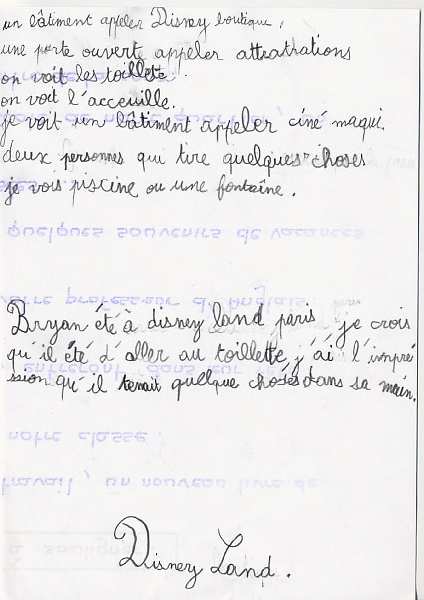 un bâtiment appeler Disney boutique,
une porte ouvert appeler attratrations
on voit les toillette.
on voit l'acceuille.
je voit un bâtiment appeler ciné maqui.
deux personnes qui tire quelques choses
je vois piscine ou une fontaîne.
quelques souvenirs de vacances
votre professeur d'Anglais
Bryan été à disney land paris je crois
qu'il été d'aller au toillette j'ai l'impré
entreront dans
ssion qu'il tenait quelque choses dans sa main.
notre classe
travail, un nouveau livre de
souligne
Disney Land.